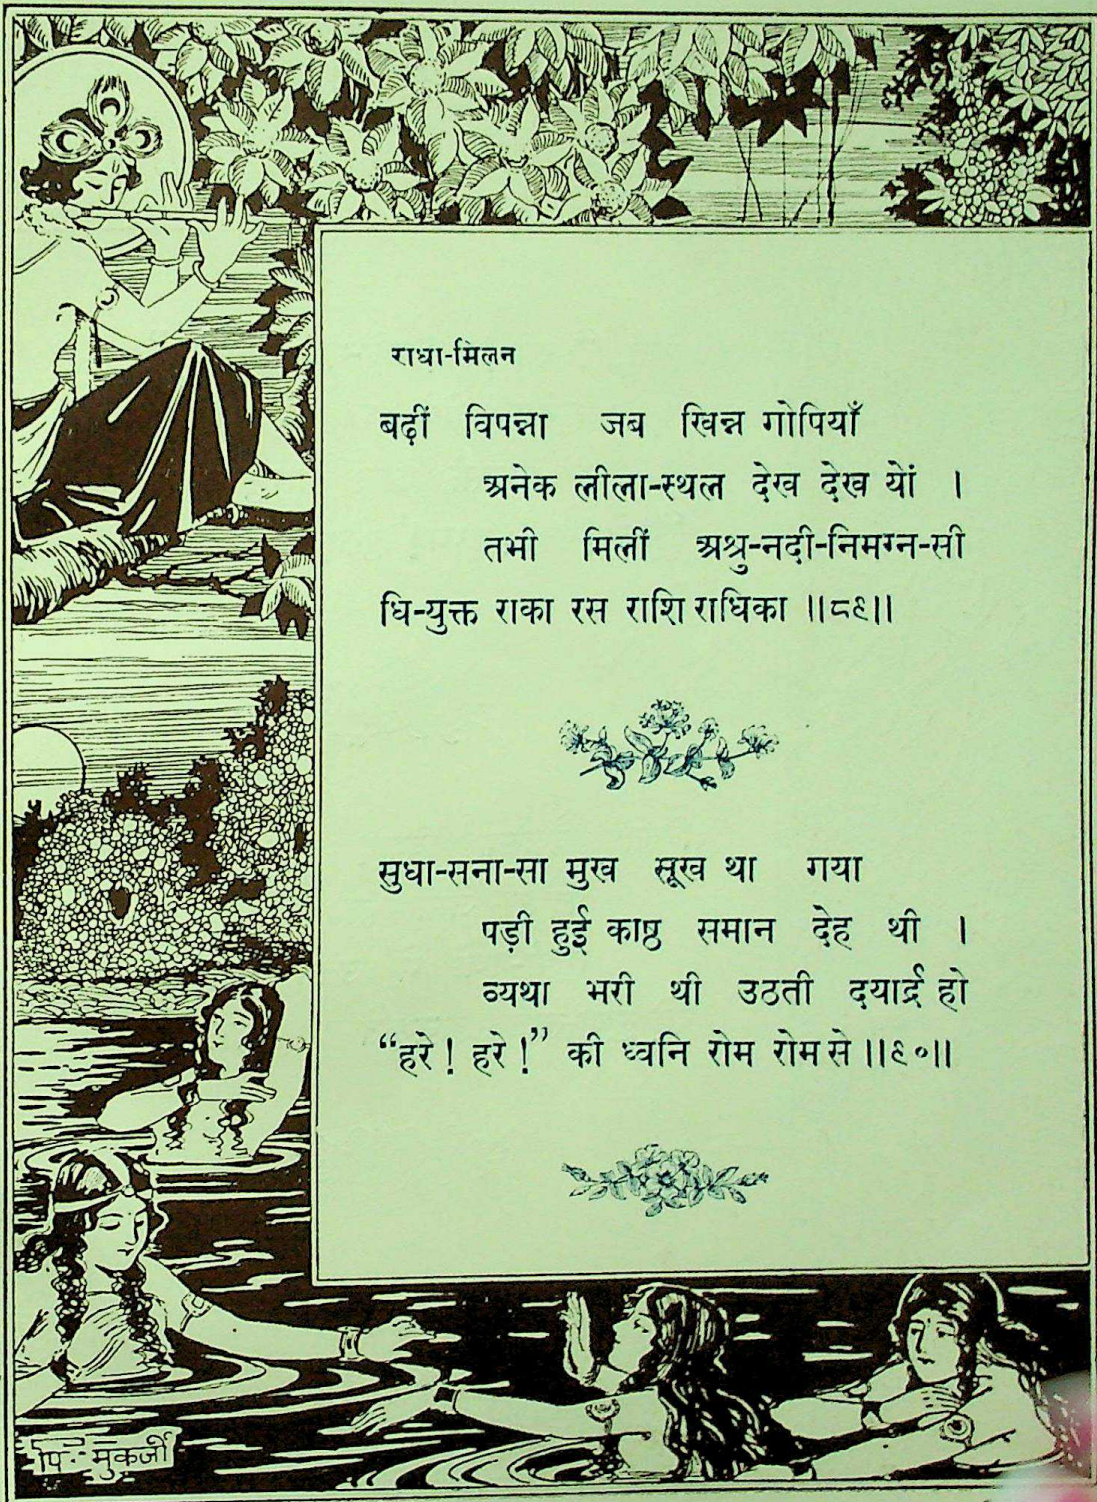 राधा-मिलन
बढ़ीं विपन्ना जब खिन्न गोपियाँ
अनेक लीला-स्थल देख देख यों ।
तभी मिलीं अश्रु-नदी-निमग्न-सी
धि-युक्त राका रस राशि राधिका ॥८९॥
सुधा-सना-सा मुख सूख था गया
पड़ी हुई काष्ठ समान देह थी ।
व्यथा भरी थी उठती दयार्द्र हो
“हरे ! हरे !” की ध्वनि रोम रोम से ॥९०॥
पि. मुकर्जी